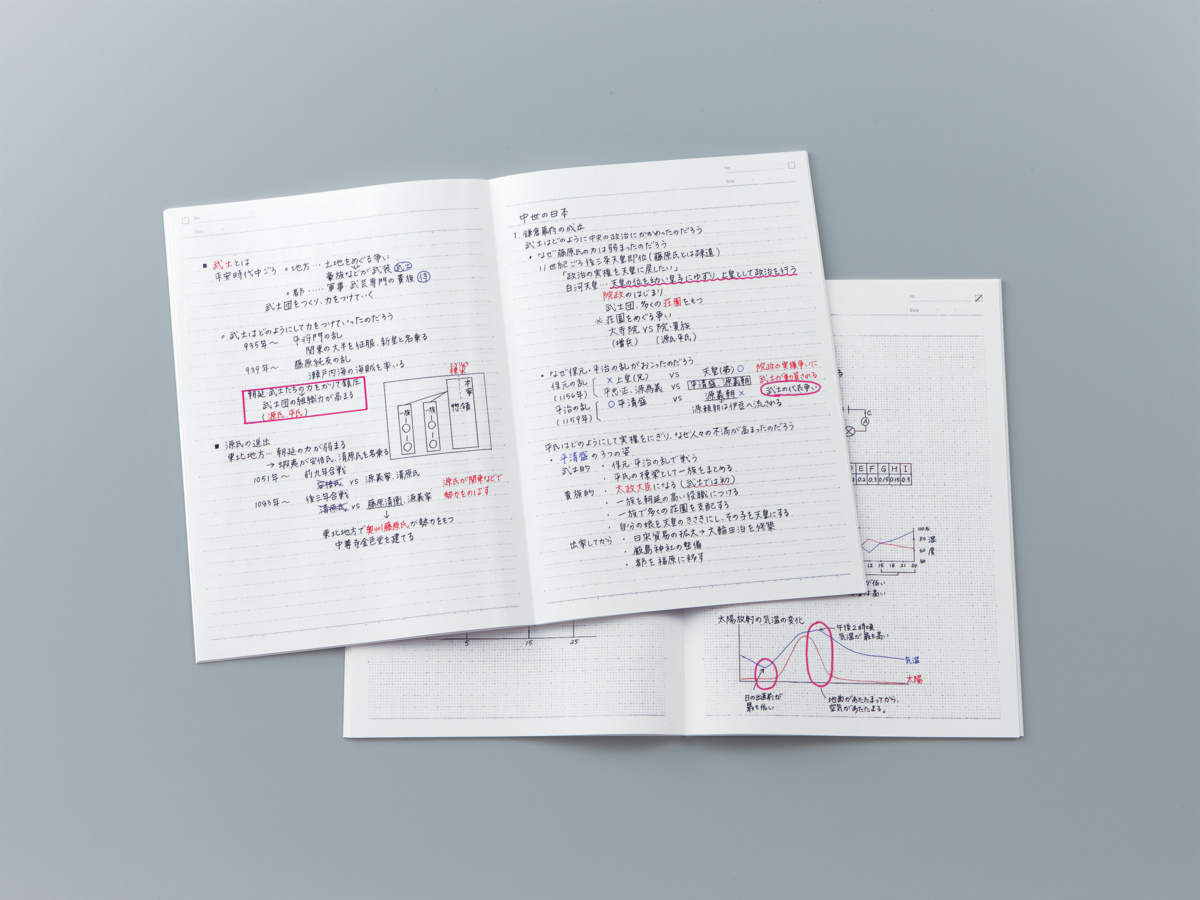 ■ 武士とは
平安時代中ごろ ○地方…土地をめぐる争い
豪族などが武装 武士
○都……軍事・武芸専門の貴族 侍
武士団をつくり、力をつけていく
○ 武士はどのようにして力をつけていったのだろう
935年〜 平将門の乱
関東の大半を征服、新皇と名乗る
939年〜 藤原純友の乱
瀬戸内海の海賊を率いる
朝廷 武士たちの力をかりて鎮圧
武士団の組織力が高まる
(源氏、平氏)
棟梁
本家
惣領
一族
一族
■ 源氏の進出
東北地方…朝廷の力が弱まる
→蝦夷が安倍氏、清原氏を名乗る
1051年〜 前九年合戦
安倍氏 vs 源義家、清原氏
1083年〜 後三年合戦
清原氏 vs 藤原清衡、源義家
源氏が関東などで
勢力をのばす
↓
東北地方で奥州藤原氏が勢力をもつ
中尊寺金色堂を建てる
No.
Date
中世の日本
1. 鎌倉幕府の成立
武士はどのように中央の政治にかかわったのだろう
・なぜ藤原氏の力は弱まったのだろう
11世紀ごろ後三条天皇即位(藤原氏とは疎遠)
「政治の実権を天皇に戻したい」
白河天皇…天皇の位を幼い皇子にゆずり、上皇として政治を行う
院政のはじまり
武士団、多くの荘園をもつ
※荘園をめぐる争い
大寺院 VS 院・貴族
(僧兵) (源氏 平氏)
・なぜ保元・平治の乱がおこったのだろう
保元の乱 ×上皇(兄) vs 天皇(弟)○
(1156年) 平忠正、源為義 vs 平清盛、源義朝
平治の乱 ○平清盛 vs 源義朝×
(1159年) 源頼朝は伊豆へ流される
院政の実権争いに
武士が動員される
武士の代表争い
平氏はどのようにして実権をにぎり、なぜ人々の不満が高まったのだろう
・平清盛の3つの姿
武士的 ・保元・平治の乱で戦う
・平氏の棟梁として一族をまとめる
貴族的 ・太政大臣になる(武士では初)
・一族を朝廷の高い役職につける
・一族で多くの荘園を支配する
・自分の娘を天皇のきさきにし、その子を天皇にする
出家してから ・日宋貿易の拡大→大輪田泊を修築
・厳島神社の整備
・都を福原に移す
No.
Date
No.
Date
C
A
E F G H I
0.2 0.3 0.15 0.15 0.3
湿度
12 15 18 21 24
が低い
は高い
5 15 25
太陽放射の気温の変化
午後2時頃
気温が最も高い
気温
太陽
日の出直前が
最も低い
地面があたたまってから、
空気があたたまる。